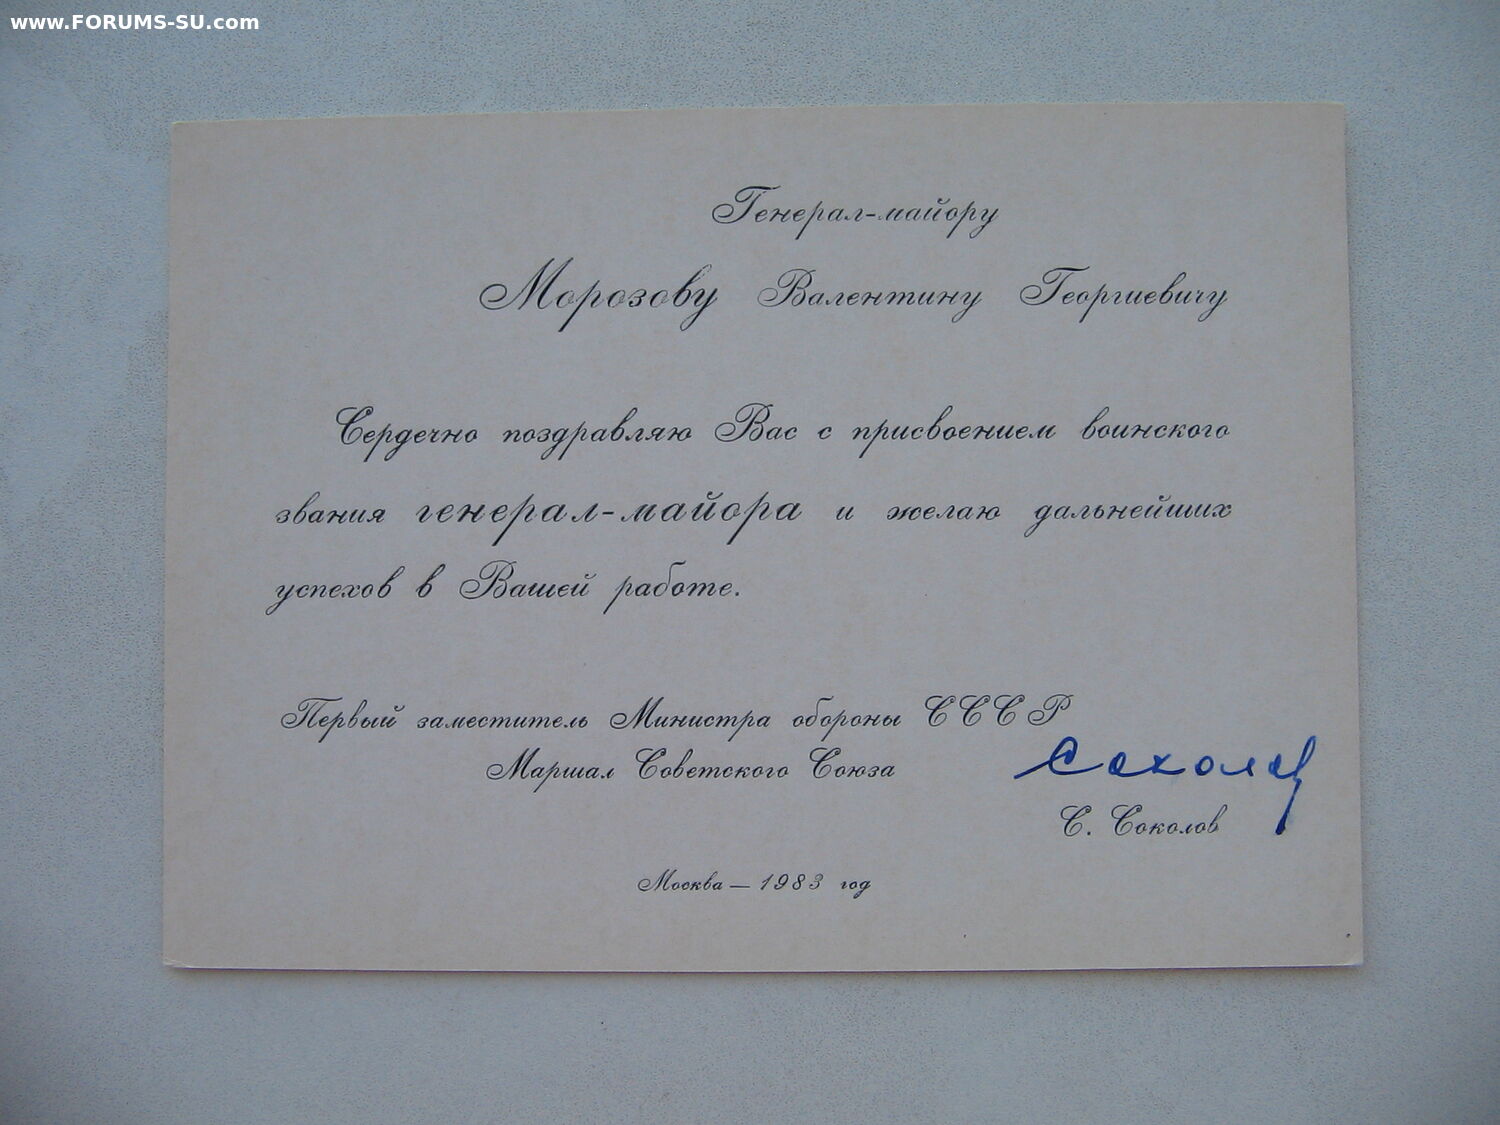 www.FORUMS-SU.com
Генерал-майору
Морозову Валентину Георгиевичу
Сердечно поздравляю Вас с присвоением воинского
звания генерал-майора и желаю дальнейших
успехов в Вашей работе.
Первый заместитель Министра обороны СССР
Маршал Советского Союза
Соколов
С. Соколов
Москва — 1983 год